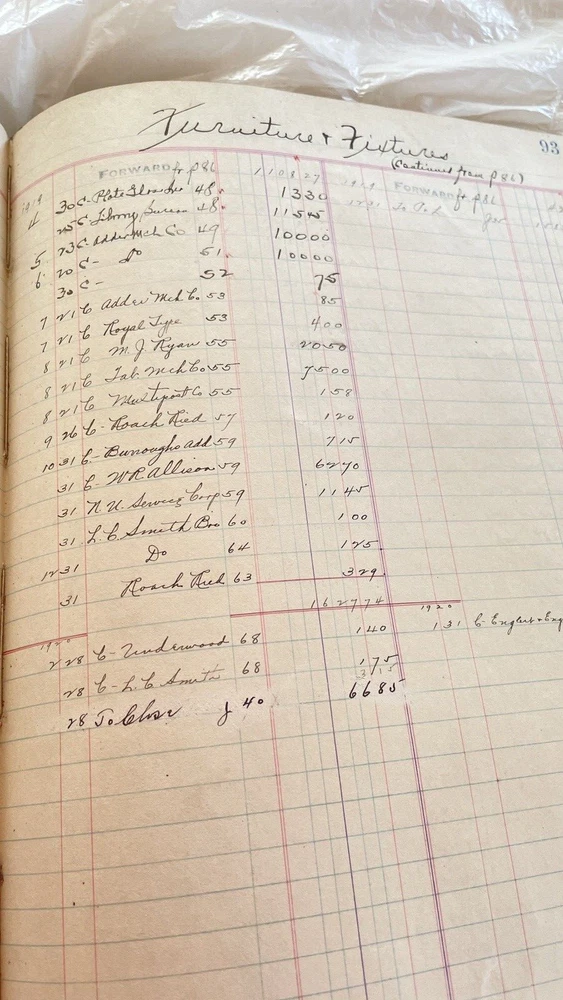 Furniture & Fixtures
93
(Continued from p 86)
FORWARD fr p86 110827 1919 FORWARD fr p86
1919
4 30 C- Plate Glass 48 1330 1231 To P.L.
25 C 48 11545
5 23 C- Adder Mch Co 49 10000
6 20 C- do 51 10000
30 C- 52 75
7 21 C Adder Mch Co 53 85
7 21 C Royal Type 53 400
8 21 C M. J. Ryan 55 2050
8 21 C Tab. Mch Co 55 7500
8 21 C Multipost Co 55 158
9 26 C- Roach Ried 57 120
10 31 C- Burroughs Add 59 715
31 C- W R Allison 59 6270
31 N. U. Service Corp 59 1145
31 L. C Smith Bro 60 100
12 31 Do 64 125
31 Roach Ried 63 329
162774
1920 1920
2 28 C- Underwood 68 140 1 31 C- Englert & Eng
28 C- L. C Smith 68 175
315
28 To Close J 40 6685